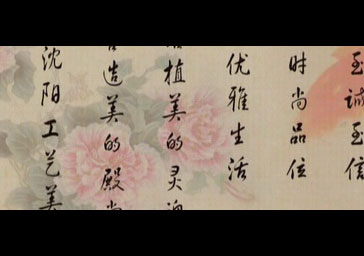 至诚至信
时尚品位
优雅生活
植美的灵
造美的殿
沈阳工艺美